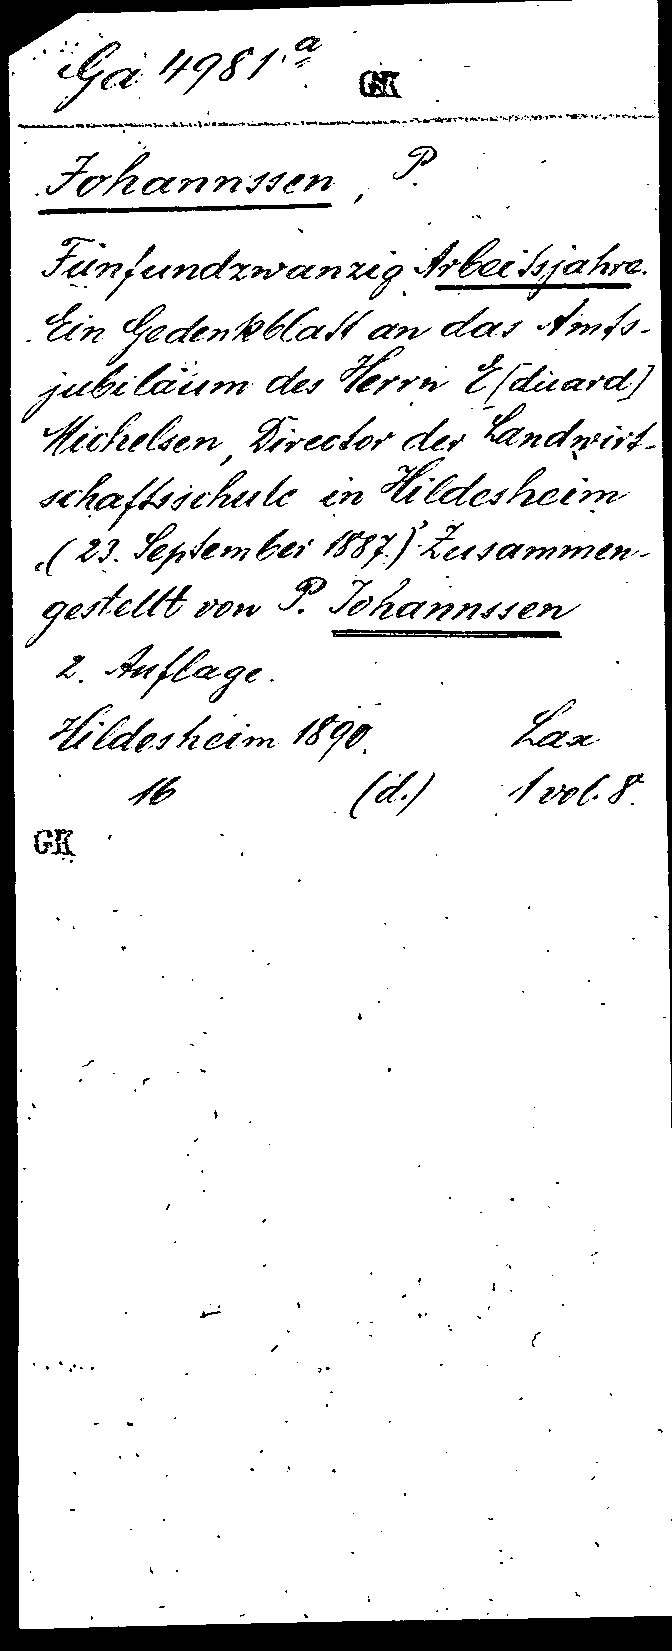 Ga 4981.a
GK
Johannssen, P.
Fünfundzwanzig Arbeitsjahre.
Ein Gedenkblatt an das Amts-
jubiläum des Herrn E[duard]
Michelsen, Director der Landwirt-
schaftsschule in Hildesheim
(23. September 1887.) Zusammen-
gestellt von P. Johannssen
2. Auflage.
Hildesheim 1890. Lax
16 (d.) 1 vol. 8°.
GK